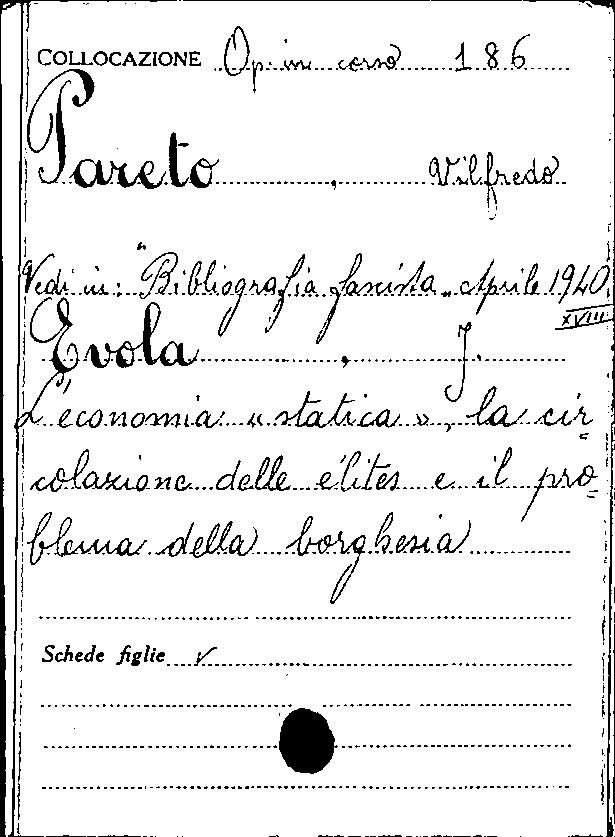 COLLOCAZIONE Op. in corso 186
Pareto , Vilfredo
Vedi in: "Bibliografia fascista" Aprile 1940
XVIII
Evola , J.
L'economia « statica », la cir=
colazione delle élites e il pro=
blema della borghesia
Schede figlie ✓